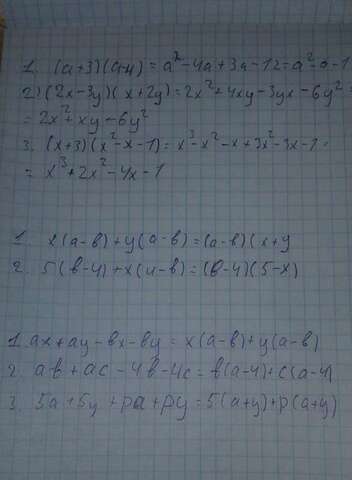 1. (a+3)(a-4) = a²-4a+3a-12=a²-a-1
2) (2x-3y)(x+2y)=2x²+4xy-3yx-6y²=
=2x²+xy-6y²
3. (x+3)(x²-x-1)=x³-x²-x+3x²-3x-1=
= x³+2x²-4x-1
1. x(a-в)+y(a-в)=(a-в)(x+y
2. 5(в-4)+x(4-в)=(в-4)(5-x)
1. ax+ay-вx-вy=x(a-в)+y(a-в)
2. aв+ac-4в-4c=в(a-4)+c(a-4)
3. 5a+5y+pa+py=5(a+y)+p(a+y)